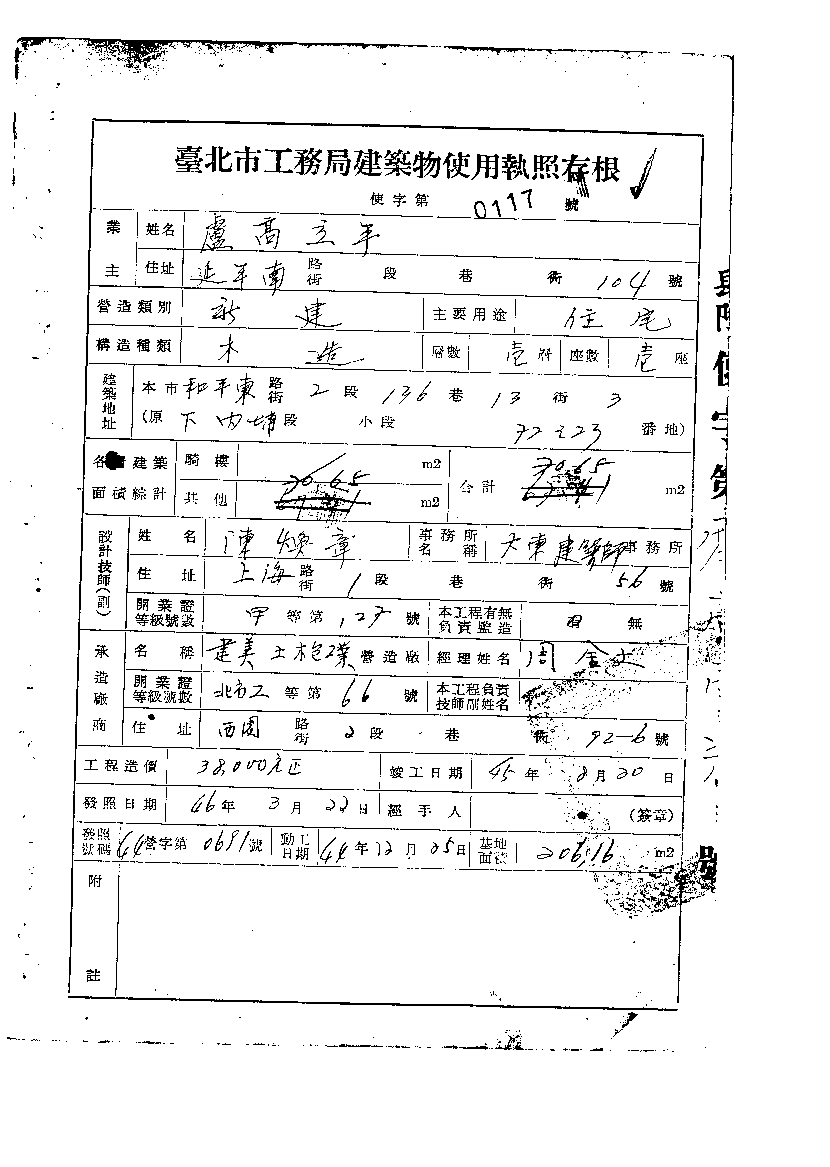 臺北市工務局建築物使用執照存根
使字第 0117 號
業主 姓名 盧高立年
住址 延平南 路街 段 巷 衖 104 號
營造類別 新建 主要用途 住宅
構造種類 木造 層數 壱層 座數 壱座
建築地址 本市 和平東 路街 2 段 136 巷 13 衖 3
(原 下內埔 段 小段 72之23 番地)
各 建築面積綜計 騎樓 m2 合計 70.65 m2
其他 70.65 m2
設計技師(副) 姓名 陳煥章 事務所名稱 大東建築師事務所
住址 上海 路街 1 段 巷 衖 56 號
開業證等級號數 甲 等第 127 號 本工程有無負責監造 有 無
承造廠商 名稱 建美土木包工業 營造廠 經理姓名 周金
開業證等級號數 北市工 等第 66 號 本工程負責技師副姓名
住址 西園 路街 2 段 巷 衖 92-6 號
工程造價 38,000元正 竣工日期 45年 8月20日
發照日期 46年 3月22日 經手人 (簽章)
發照號碼 44營字第 0691號 動工日期 44年12月25日 基地面積 206.16 m2
附註
縣 使字第
號